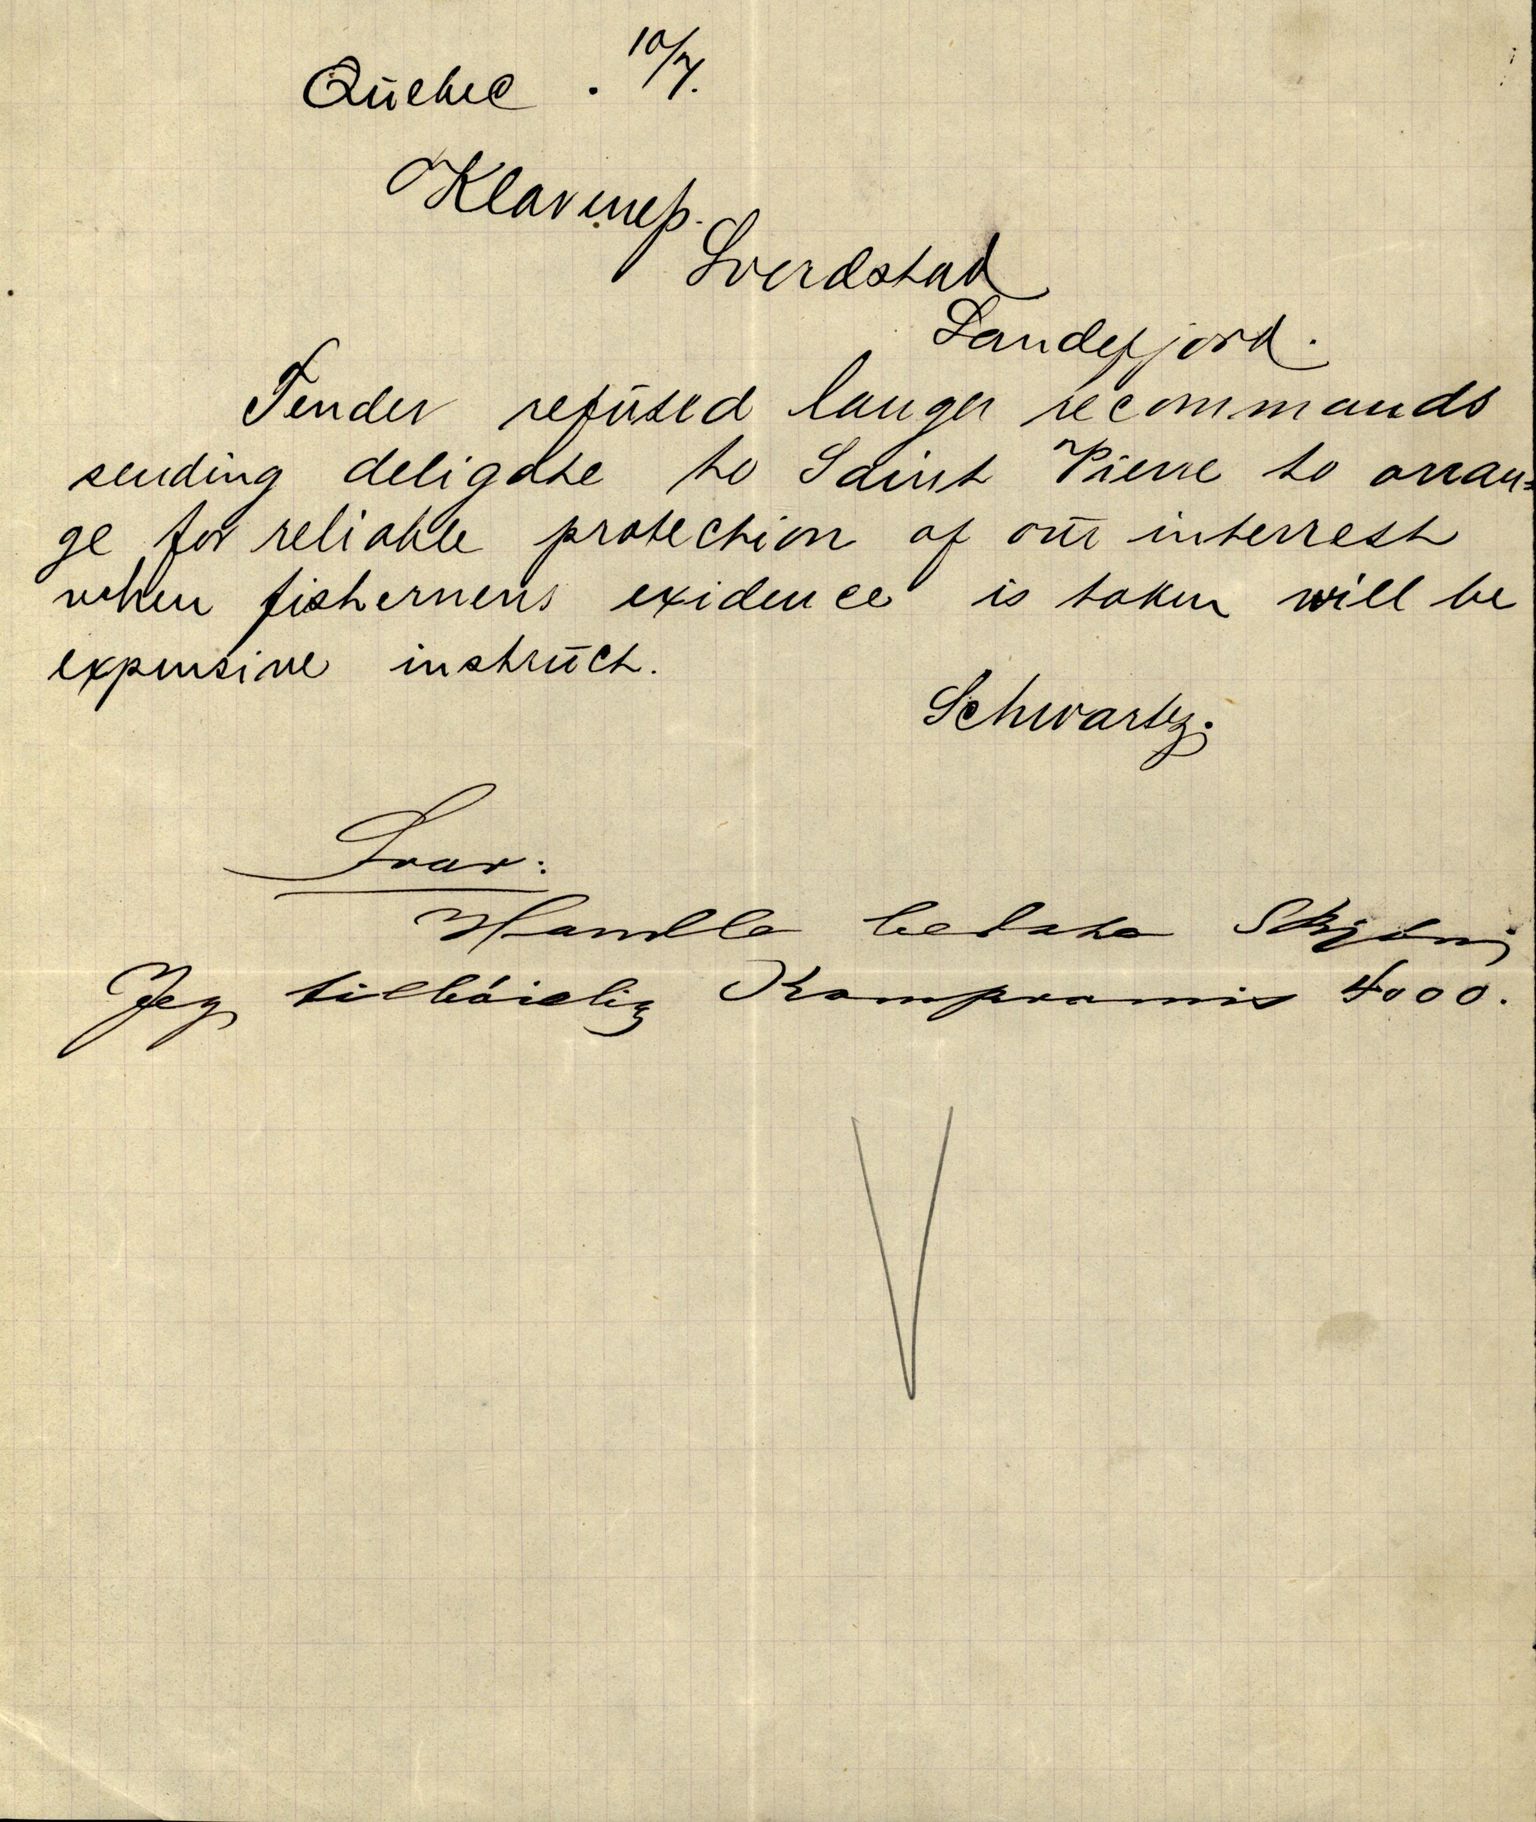 Quebec . 10/7.
Klavenes.
Sverdstad
Sandefjord.
Tender refused langer recommands
sending deligate to Saint Pierre to arran=
ge for reliable protection of our interrest
when fishermens exidence is taken will be
expensive instruct.
Schwartz.
Svar:
Handle bedste Skjøn
Jeg tilbøielig Kompromis 4000.